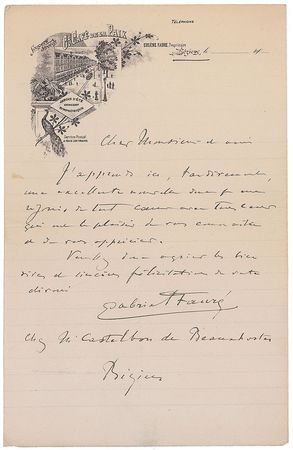 TÉLÉPHONE
Gd CAFÉ DE LA PAIX
EUGÈNE FABRE, Propriétaire
Béziers, le 19
JARDIN D'ÉTÉ
Cher Monsieur et ami
J'apprends ici, tardivement,
une excellente nouvelle dont je me
réjouis de tout cœur avec tous ceux
qui ont le plaisir de vous connaître
et de vous apprécier.
Veuillez donc agréer les bien
vives et sincères félicitations de votre
dévoué
Gabriel Fauré
Chez M. Castelbon de Beauxhostes
Béziers